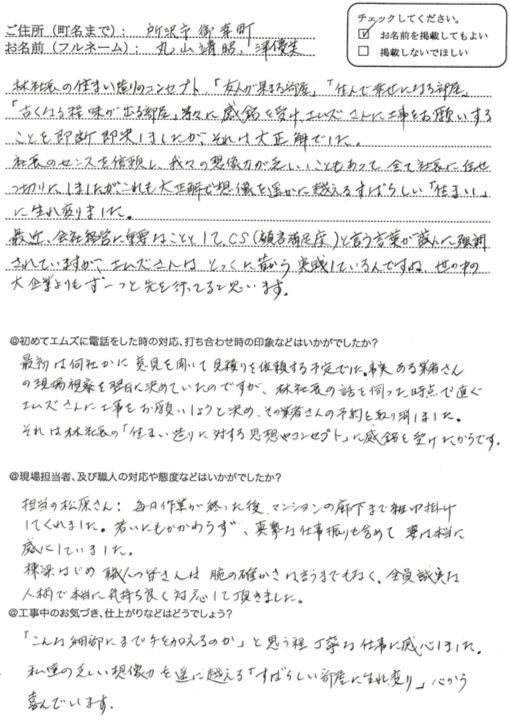 チェックしてください。
お名前を掲載してもよい
掲載しないでほしい
ご住所（町名まで）： 所沢市御幸町
お名前（フルネーム）： 丸山靖昭、澤優実
林社長の住まい造りのコンセプト、「友人が集まる部屋」「住んで幸せになる部屋」
「古くなる程味が出る部屋」等々に感銘を受け、エムズさんに工事をお願いする
ことを即断即決しましたが、それは大正解でした。
社長のセンスを信頼し、我々の想像力が乏しいこともあって、全て社長に任せ
っきりにしましたがこれも大正解で想像を遥かに越えるすばらしい「住まい」
に生れ変りました。
最近、会社経営に重要なこととしてCS（顧客満足度）と言う言葉が盛んに強調
されていますが、エムズさんは とっくに昔から実践しているんですね。世の中の
大企業よりもずーっと先を行ってると思います。
@初めてエムズに電話をした時の対応、打ち合わせ時の印象などはいかがでしたか?
最初は何社かに意見を聞いて見積りを依頼する予定でした。事実ある業者さん
の現場視察を翌日に決めていたのですが、林社長の話を伺った時点で直ぐ
エムズさんに工事をお願いしようと決め、その業者さんの予約を取り消しました。
それは林社長の「住まい造りに対する思想やコンセプト」に感銘を受けたからです。
@現場担当者、及び職人の対応や態度などはいかがでしたか?
担当の松原さん：毎日作業が終った後、マンションの廊下まで雑巾掛け
してくれました。若いにもかかわらず、真摯な仕事振りも含めて 妻は本当に
感心していました。
棟梁はじめ 職人の皆さんは 腕の確かさは言うまでもなく、全員誠実な
人柄で本当に気持ち良く対応して頂きました。
@工事中のお気づき、仕上がりなどはどうでしょう?
「こんな細部にまで手を加えるのか」と思う程 丁寧な仕事に感心しました。
私達の乏しい想像力を遥に越える「すばらしい部屋に生れ変り」心から
喜んでいます。